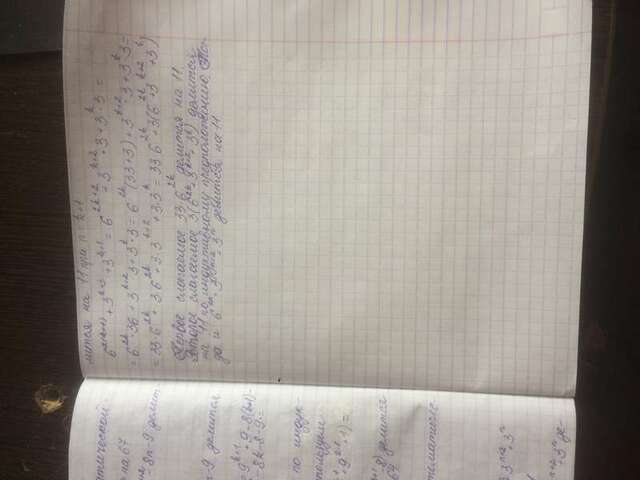 атической
на 67
8n-9 делит
n-9 делится
9^{k+1}+9-8(k+1)-
-8k-8-9=
по индук-
пользуем-
8) делится
64
тематиче-
3^{n+2}+3^n
^{n+2}+3^n де-
мится на 11 при n=k+1
6^{2(k+1)}+3^{k+3}+3^{k+1}=6^{2k+2}+3^{k+2}·3+3^k·3=
=6^{2k}·36+3^{k+2}·3+3^k·3=6^{2k}(33+3)+3^{k+2}·3+3^k·3=
=33·6^{2k}+3·6^{2k}+3·3^{k+2}+3·3^k=33·6^{2k}+3(6^{2k}+3^{k+2}+3^k)
Первое слагаемое 33·6^{2k} делится на 11
Второе слагаемое 3(6^{2k}+3^{k+2}+3^k) делится
на 11 по индуктивному предположению Тог-
да и 6^{2n}+3^{n+2}+3^n делится на 11